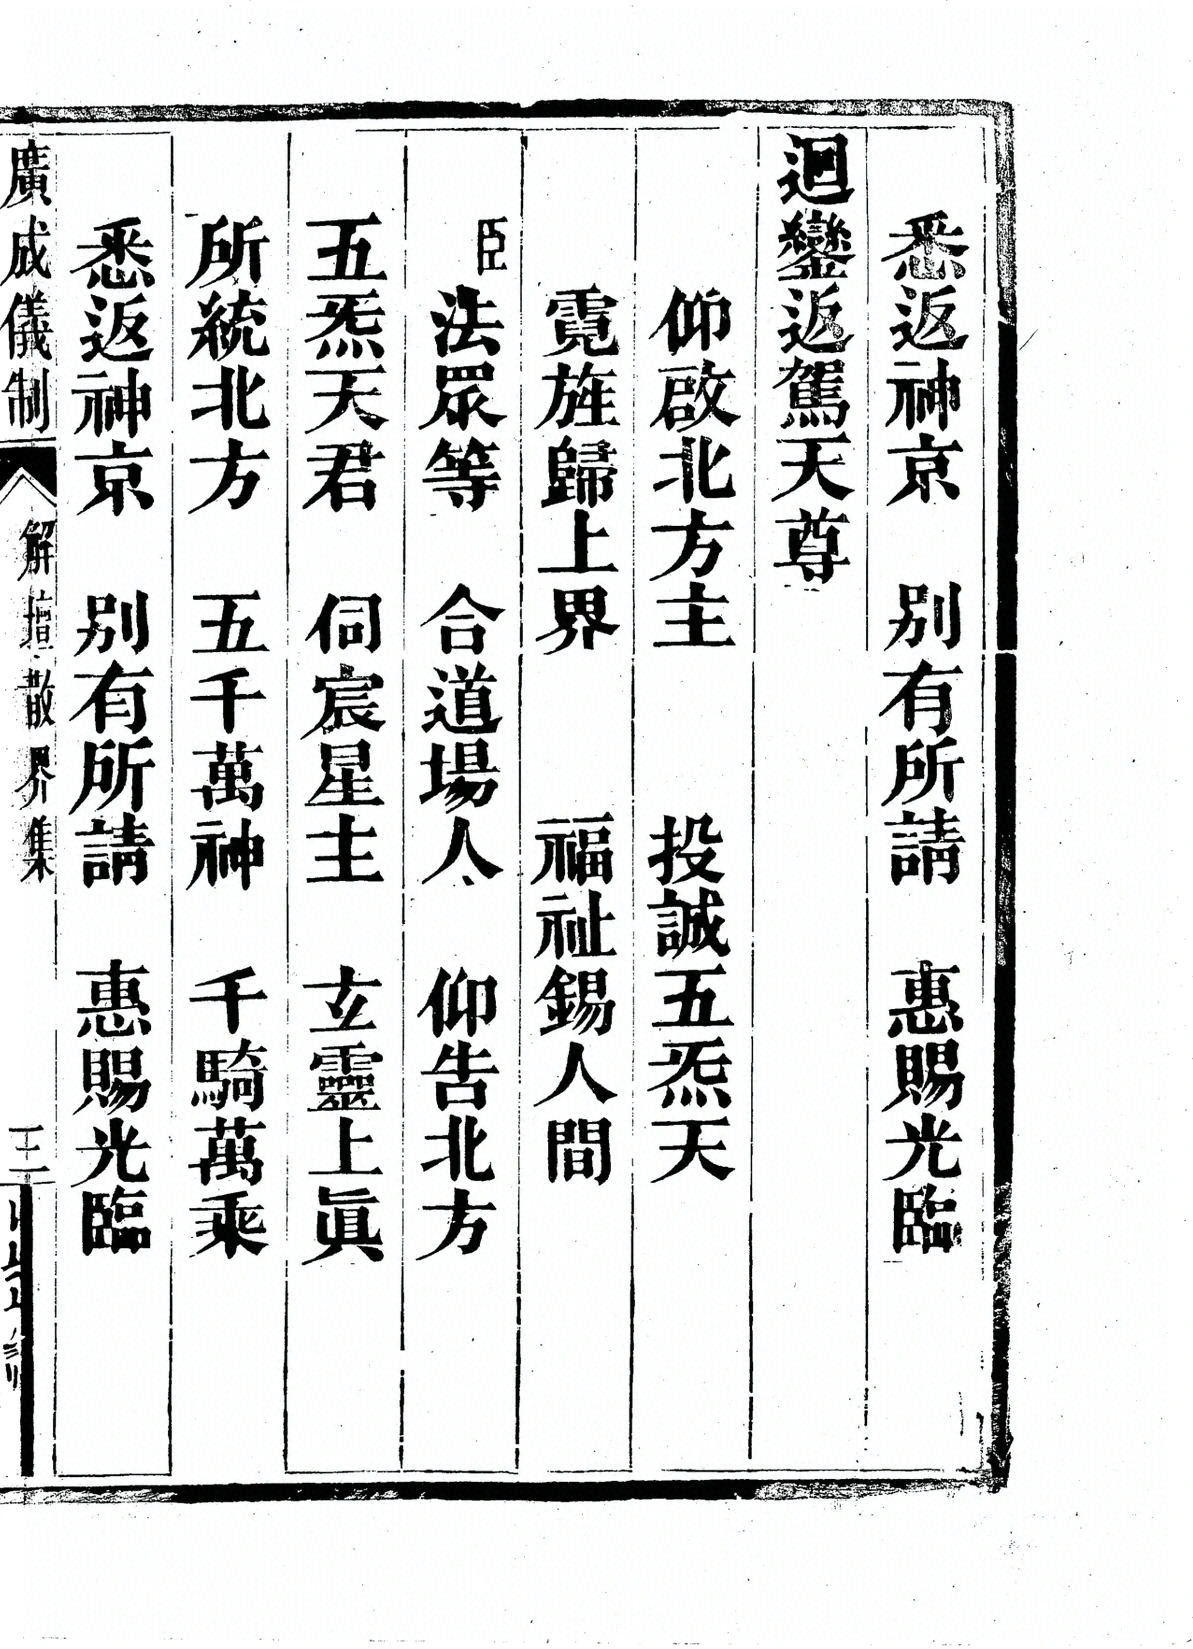 悉返神京　別有所請　惠賜光臨
迴鑾返駕天尊
仰啟北方主　投誠五炁天
霓旌歸上界　福祉錫人間
臣　法眾等　合道場人　仰告北方
五炁天君　伺宸星主　玄靈上眞
所統北方　五千萬神　千騎萬乘
悉返神京　別有所請　惠賜光臨
廣成儀制　解壇散界集　三